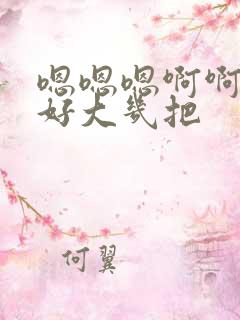 嗯嗯嗯啊啊
好大几把
何翼